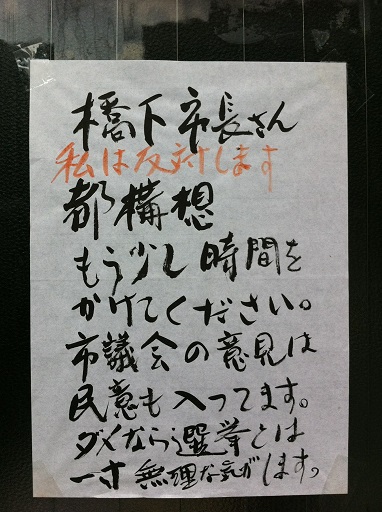 橋下市長さん
私は反対します
都構想
もう少し時間を
かけてください。
市議会の意見は
民意も入ってます。
ダメなら選挙とは
一寸無理な気がします。